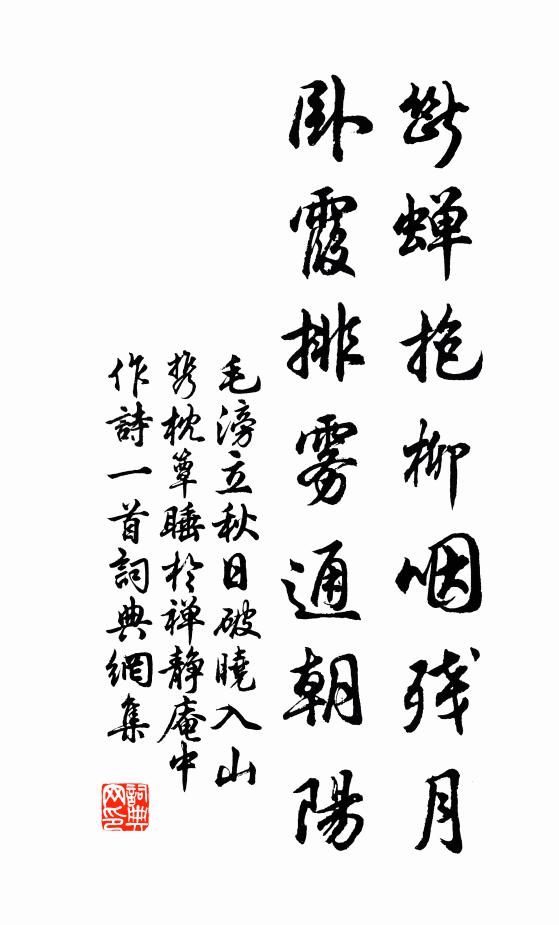 断蝉抱柳咽残月
卧霞排雾通朝陽
毛滂立秋日破曉入山
携枕簟睡於禅静庵中
作詩一首詞典網集
詞典网印